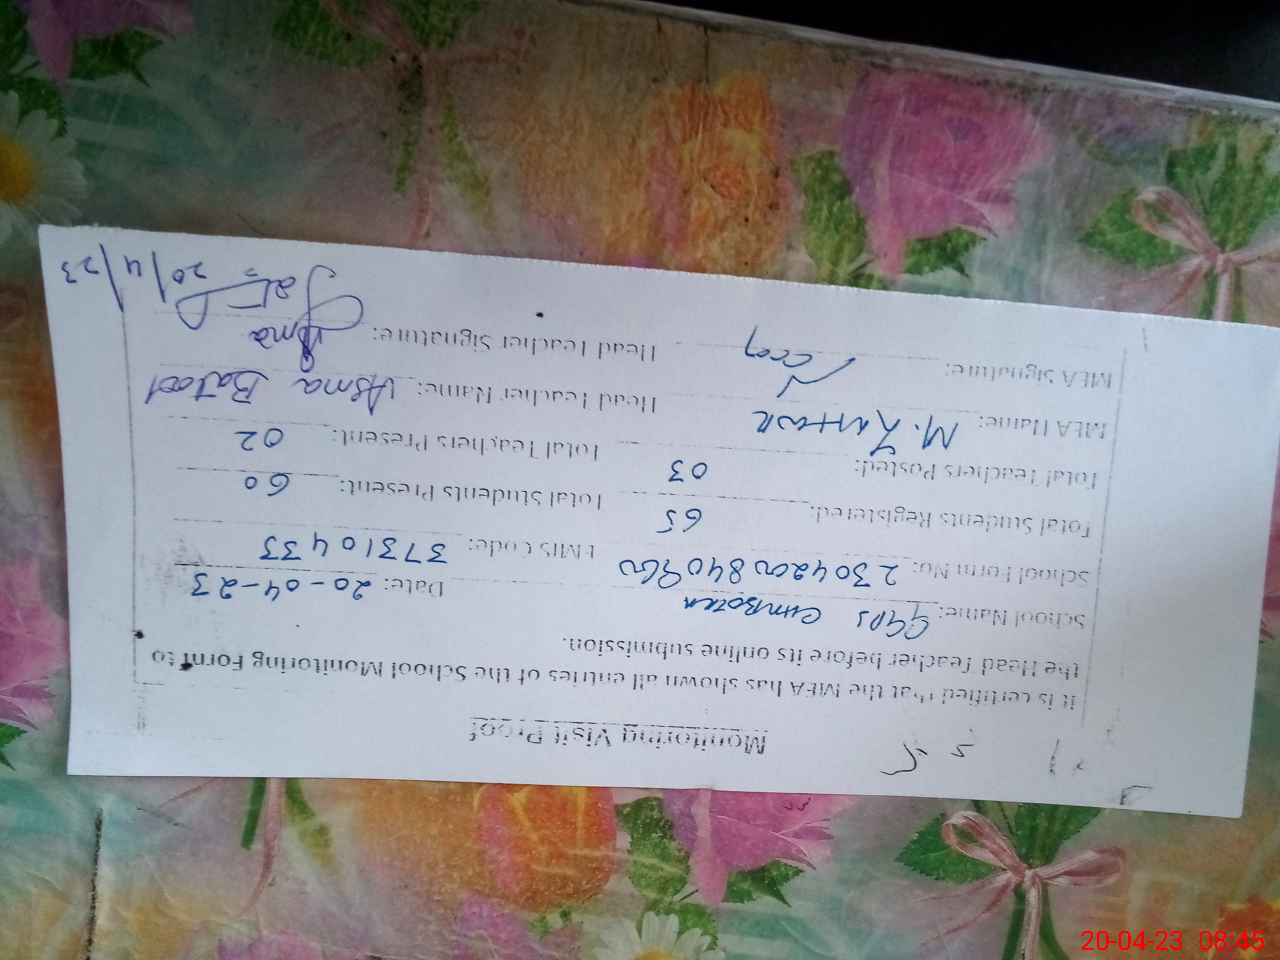 Monitoring Visit Proof
It is certified that the MEA has shown all entries of the School Monitoring Form to
the Head Teacher before its online submission.
School Name: GGPS Date: 20-04-23
School Form No: 2304200840960 EMIS Code: 37310433
Total Students Registered: 65 Total Students Present: 60
Total Teachers Posted: 03 Total Teachers Present: 02
MEA Name: M. Head Teacher Name: Asma Batool
MEA Signature: Head Teacher Signature: Asma
20/4/23
20-04-23 08:45